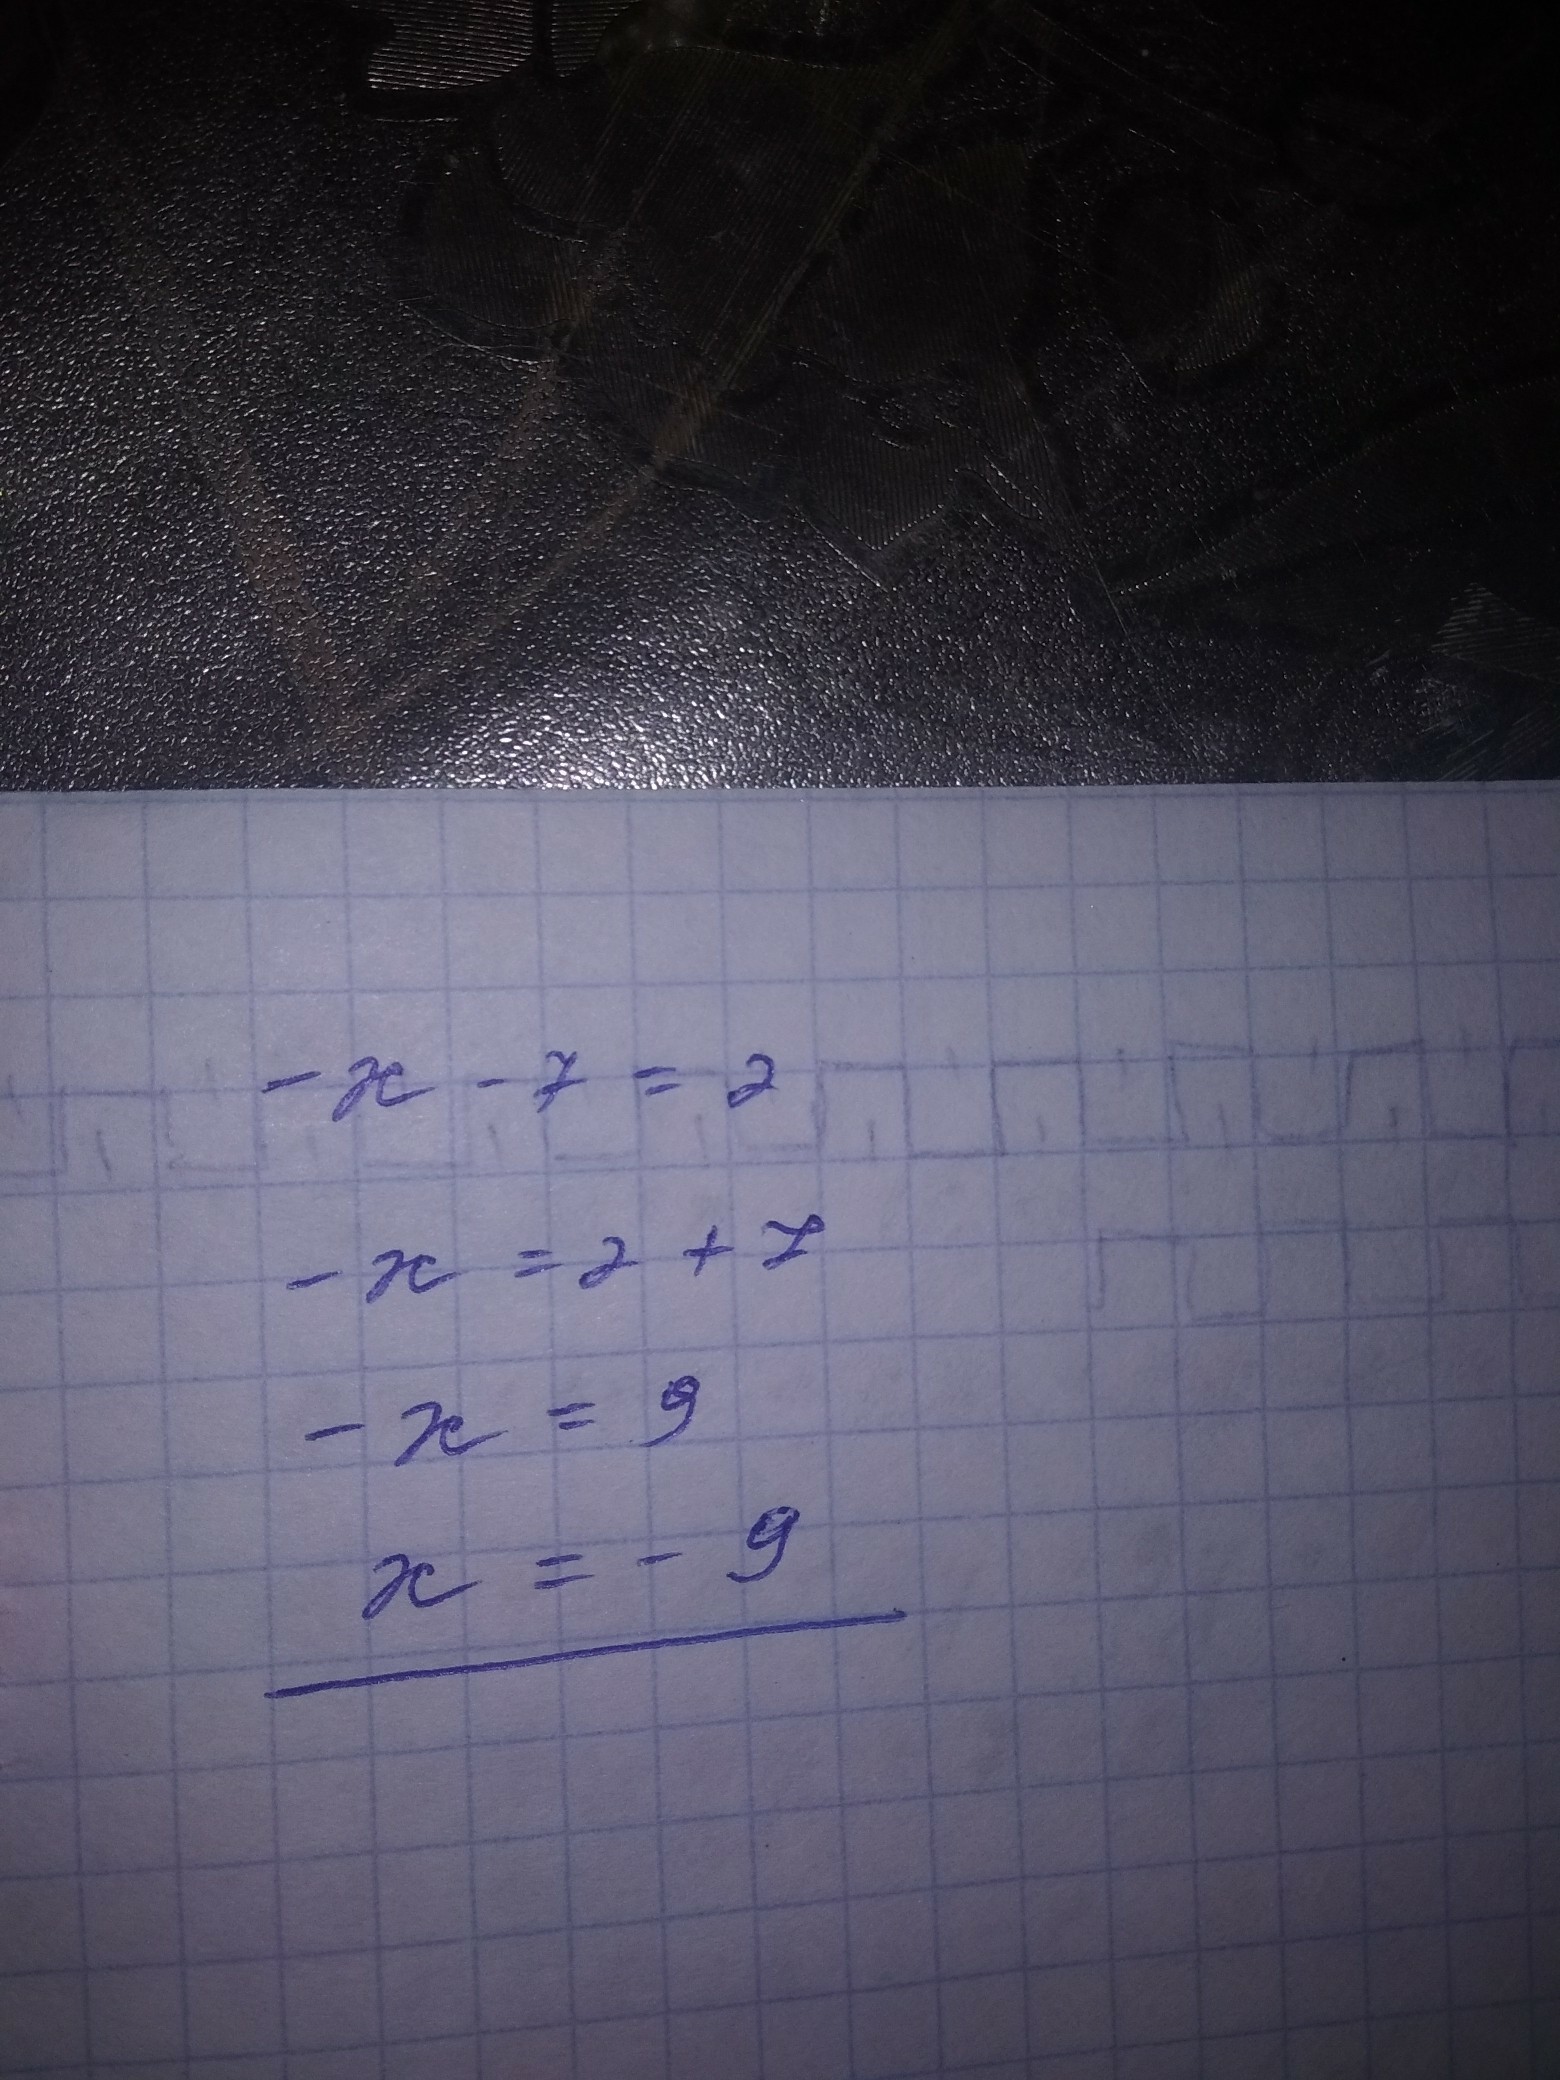 -x - 7 = 2
-x = 2 + 7
-x = 9
x = - 9